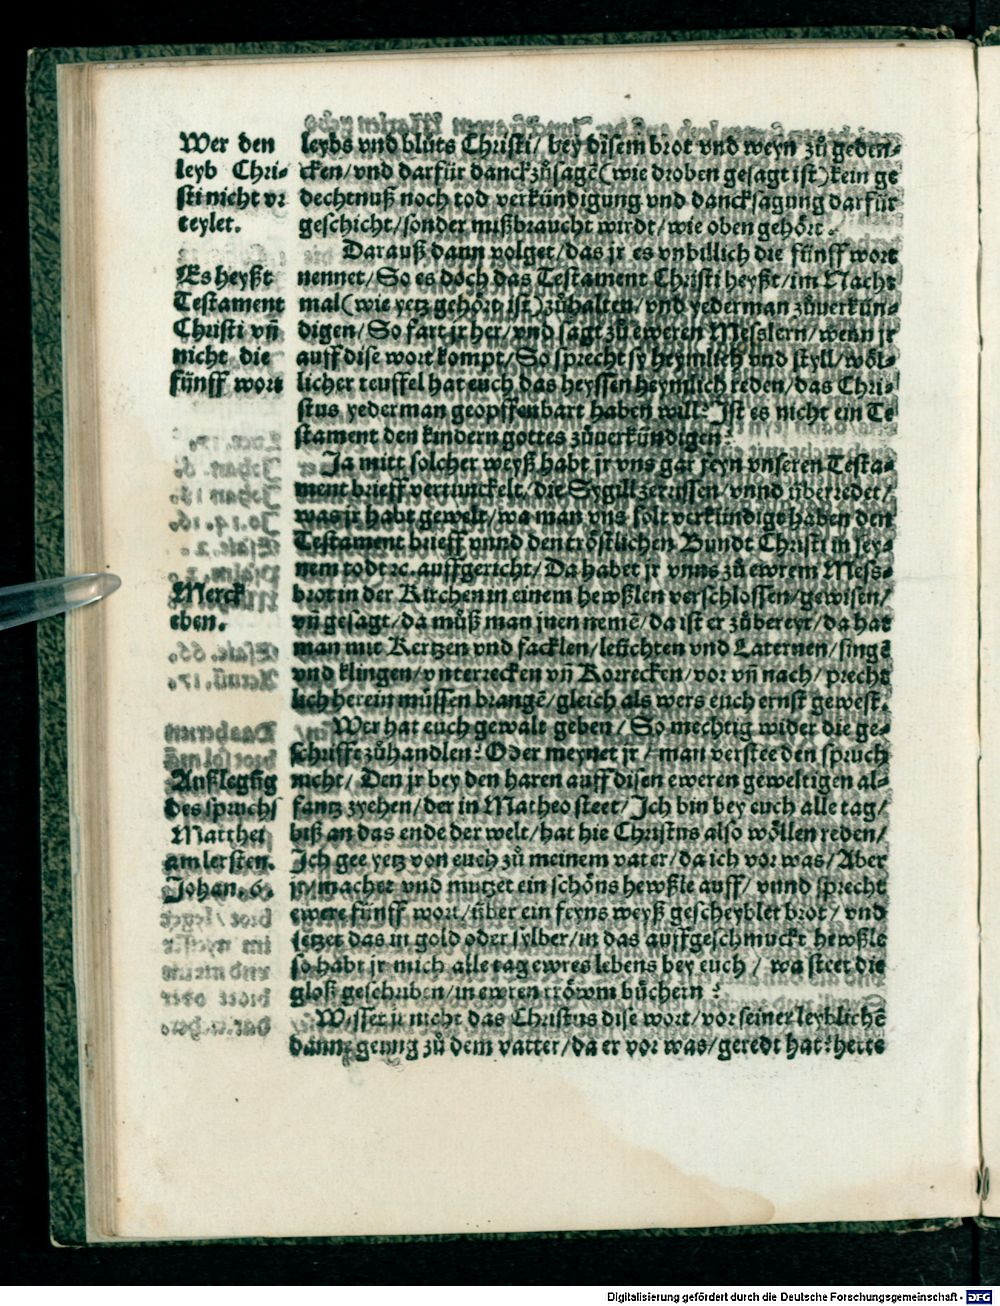 Wer den
leyb Chri-
sti nicht vr
teylet.
leybs vnd blůts Christi/ bey disem brot vnd weyn zů geden-
cken/vnd darfür danck zůsagē(wie droben gesagt ist)kein ge
dechtnuß noch tod verkündigung vnd dancksagung darfür
geschicht/sonder mißbraucht wirdt/wie oben gehört.
Darauß dann volget/das jr es vnbillich die fünff wort
Es heyßt
Testament
Christi vñ
nicht die
fünff wort
nennet/So es doch das Testament Christi heyßt/im Nacht
mal(wie yetz gehört ist)zůhalten/vnd yederman zůuerkün-
digen/So fart jr her/vnd sagt zů eweren Messlern/wenn jr
auff dise wort kompt/So sprecht sy heymlich vnd styll/wöl-
licher teuffel hat euch das heyssen heymlich reden/das Chri-
stus yederman geopffenbart haben will? Ist es nicht ein Te
stament den kindern gottes zůuerkündigen?
Ja mitt solcher weyß habt jr vns gar feyn vnseren Testa-
ment brieff vertunckelt/die Sygill zerrissen/vnnd überredet/
was jr habt gewelt/wa man vns solt verkündigt haben den
Testament brieff vnnd den tröstlichen Bundt Christi in sey-
nem todt ꝛc. auffgericht/Da habet jr vnns zů ewrem Mess-
Merck
eben.
brot in der Kirchen in einem hewßlen verschlossen/gewisen/
vñ gesagt/da můß man jnen nemē/da ist er zůbereyt/da hat
man mit Kertzen vnd facklen/leüchten vnd Laternen/singē
vnd klingen/vnterrecken vñ Korrecken/vor vñ nach/precht
lich herein müssen brangē/gleich als wers euch ernst gewest.
Wer hat euch gewalt geben/ So mechtig wider die ge-
schrifft zůhandlen? Oder meynet jr/ man verstee den spruch
Außlegūg
des spruchs
Matthei
am lersten.
Johan. 6.
nicht/ Den jr bey den haren auff disen eweren geweltigen al-
fantz zyehen/der in Matheo steet/Ich bin bey euch alle tag/
biß an das ende der welt/hat hie Christus also wöllen reden/
Ich gee yetz von euch zů meinem vater/da ich vor was/Aber
jr/machet vnd mutzet ein schöns hewßle auff/ vnnd sprecht
ewere fünff wort/über ein feyns weyß gescheyblet brot/ vnd
setzet das in gold oder sylber/in das auffgeschmuckt hewßle
so habt jr mich alle tag ewres lebens bey euch/ wa steet die
gloß geschriben/in ewren tröwm büchern?
Wisset jr nicht das Christus dise wort/vor seiner leyblichē
dannen geung zů dem vatter/da er vor was/geredt hat? hette
Digitalisierung gefördert durch die Deutsche Forschungsgemeinschaft - DFG